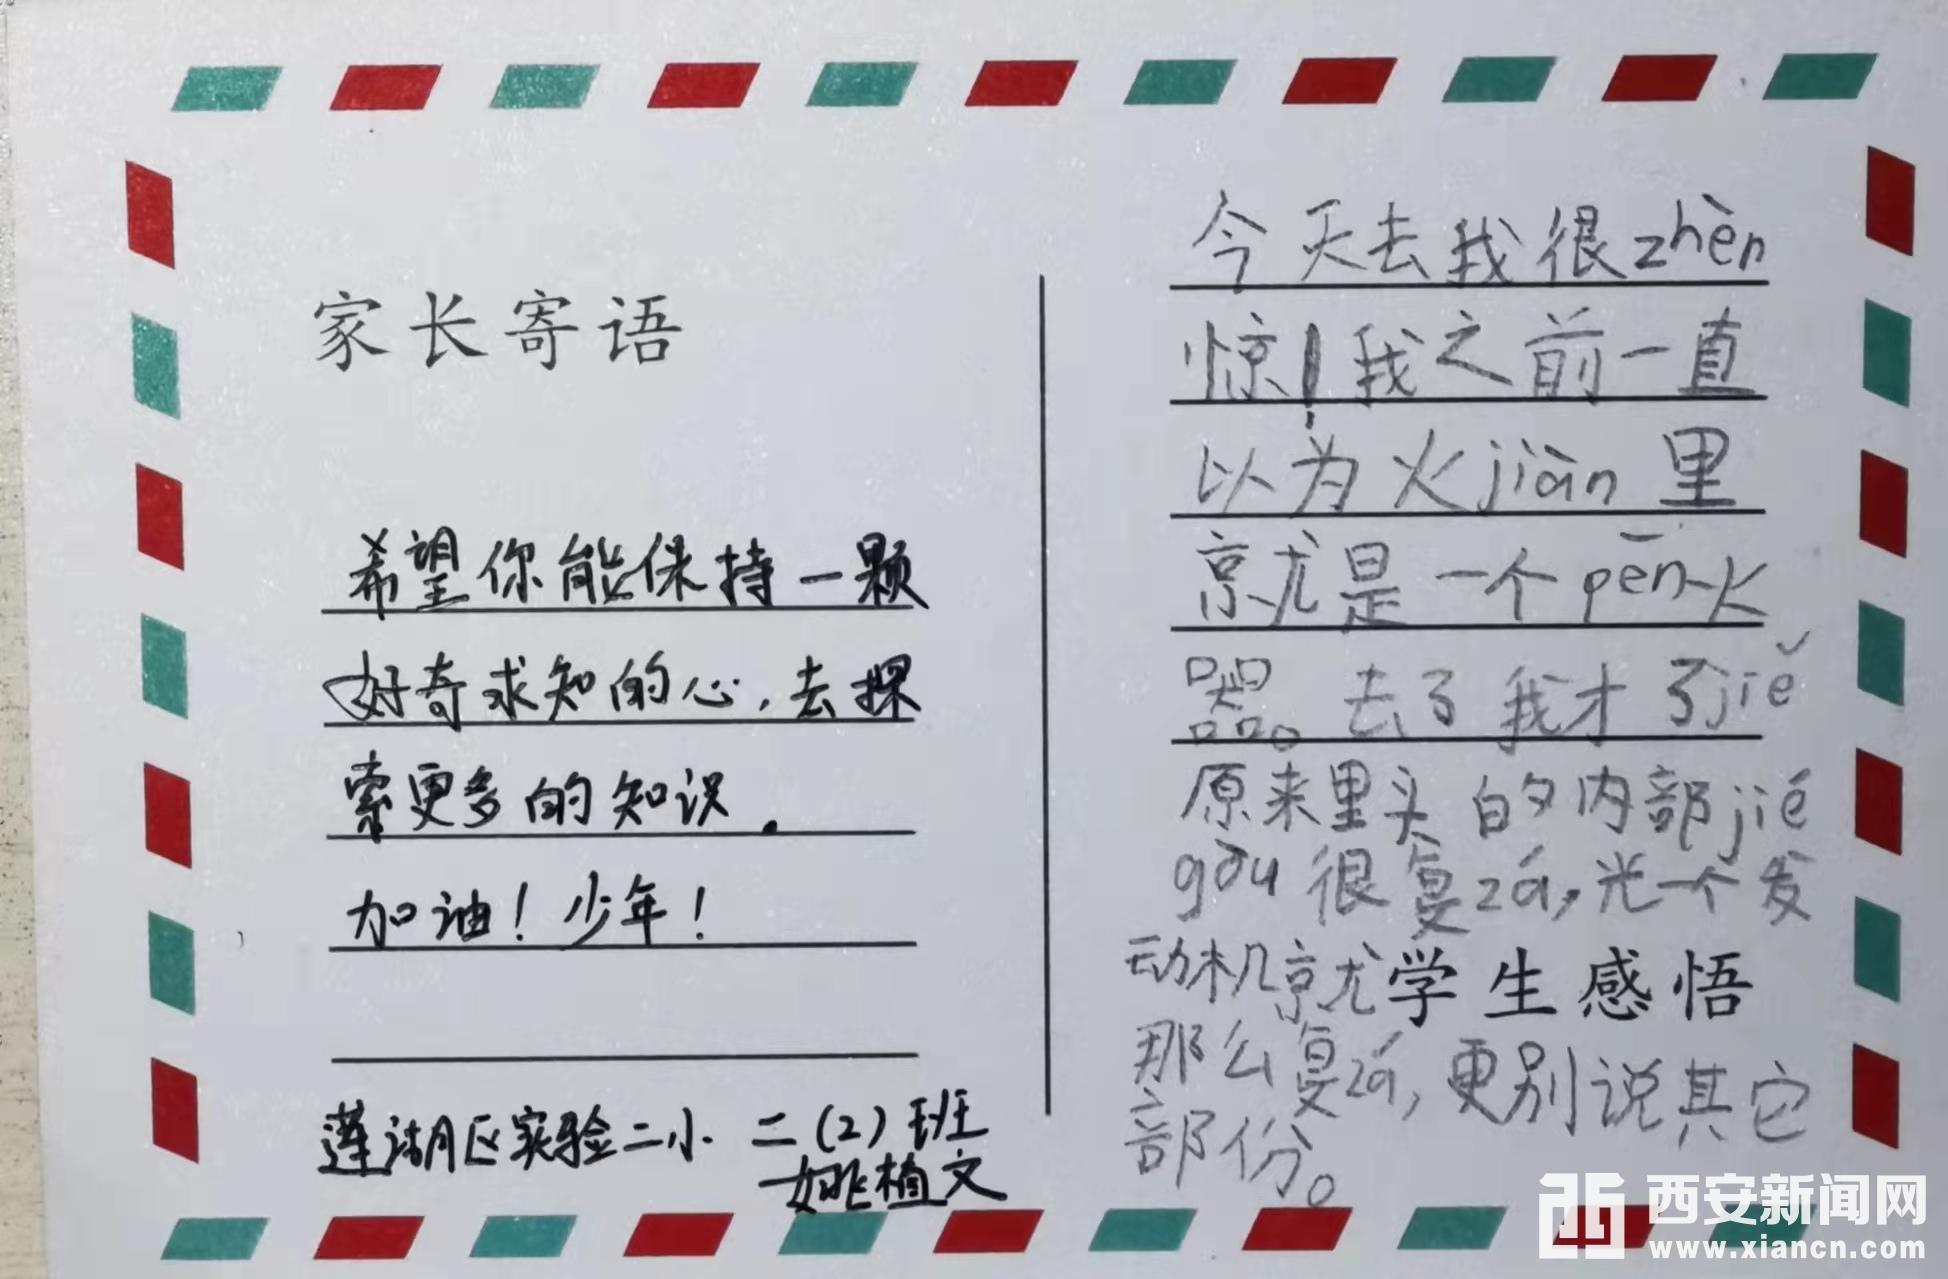 家长寄语
希望你能保持一颗
好奇求知的心，去探
索更多的知识.
加油！少年！
莲湖区实验二小 二(2)班
姚植文
今天去我很zhèn
惊！我之前一直
以为火jiàn里
就是一个pēn火
器。去了我才了jiě
原来里头的内部jié
gòu很复zá，光一个发
动机就
学生感悟
那么复zá，更别说其它
部份。
西安新闻网
www.xiancn.com